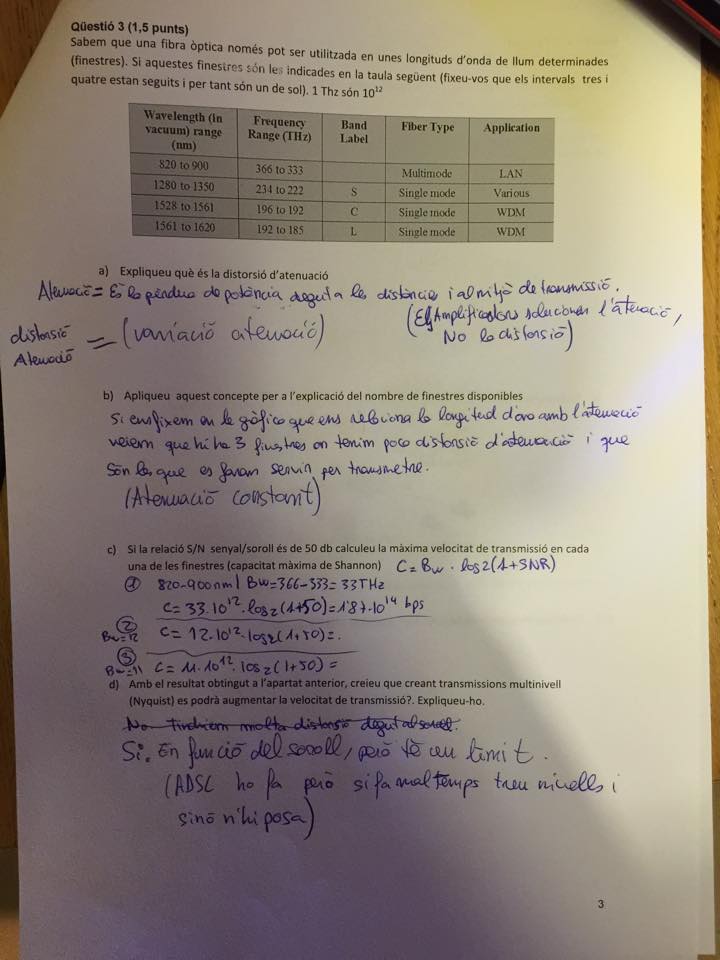 Qüestió 3 (1,5 punts)
Sabem que una fibra òptica només pot ser utilitzada en unes longituds d'onda de llum determinades
(finestres). Si aquestes finestres són les indicades en la taula següent (fixeu-vos que els intervals tres i
quatre estan seguits i per tant són un de sol). 1 Thz són 10¹²
Wavelength (in vacuum) range (nm) Frequency Range (THz) Band Label Fiber Type Application
820 to 900 366 to 333 Multimode LAN
1280 to 1350 234 to 222 S Single mode Various
1528 to 1561 196 to 192 C Single mode WDM
1561 to 1620 192 to 185 L Single mode WDM
a) Expliqueu què és la distorsió d'atenuació
Atenuació = És la pèrdua de potència deguda a les distàncies i al mitjà de transmissió.
distorsió
Atenuació = (variació atenuació)
(Els Amplificadors solucionen l'atenuació,
No la distorsió)
b) Apliqueu aquest concepte per a l'explicació del nombre de finestres disponibles
Si ens fixem en la gràfica que ens relaciona la longitud d'ona amb l'atenuació
veiem que hi ha 3 finestres on tenim poca distorsió d'atenuació i que
són les que es faran servir per transmetre.
(Atenuació constant)
c) Si la relació S/N senyal/soroll és de 50 db calculeu la màxima velocitat de transmissió en cada
una de les finestres (capacitat màxima de Shannon) C = Bw · log2(1+SNR)
① 820-900nm | Bw=366-333=33THz
C=33·10¹²·log2(1+50)=1'87·10¹⁴ bps
② Bw=12 C=12·10¹²·log2(1+50)=.
③ Bw=11 C=11·10¹²·log2(1+50)=
d) Amb el resultat obtingut a l'apartat anterior, creieu que creant transmissions multinivell
(Nyquist) es podrà augmentar la velocitat de transmissió?. Expliqueu-ho.
No tindriem molta distorsió degut al soroll.
Si. En funció del soroll, però té un límit.
(ADSL ho fa però si fa mal temps treu nivells i
sinó n'hi posa)
3